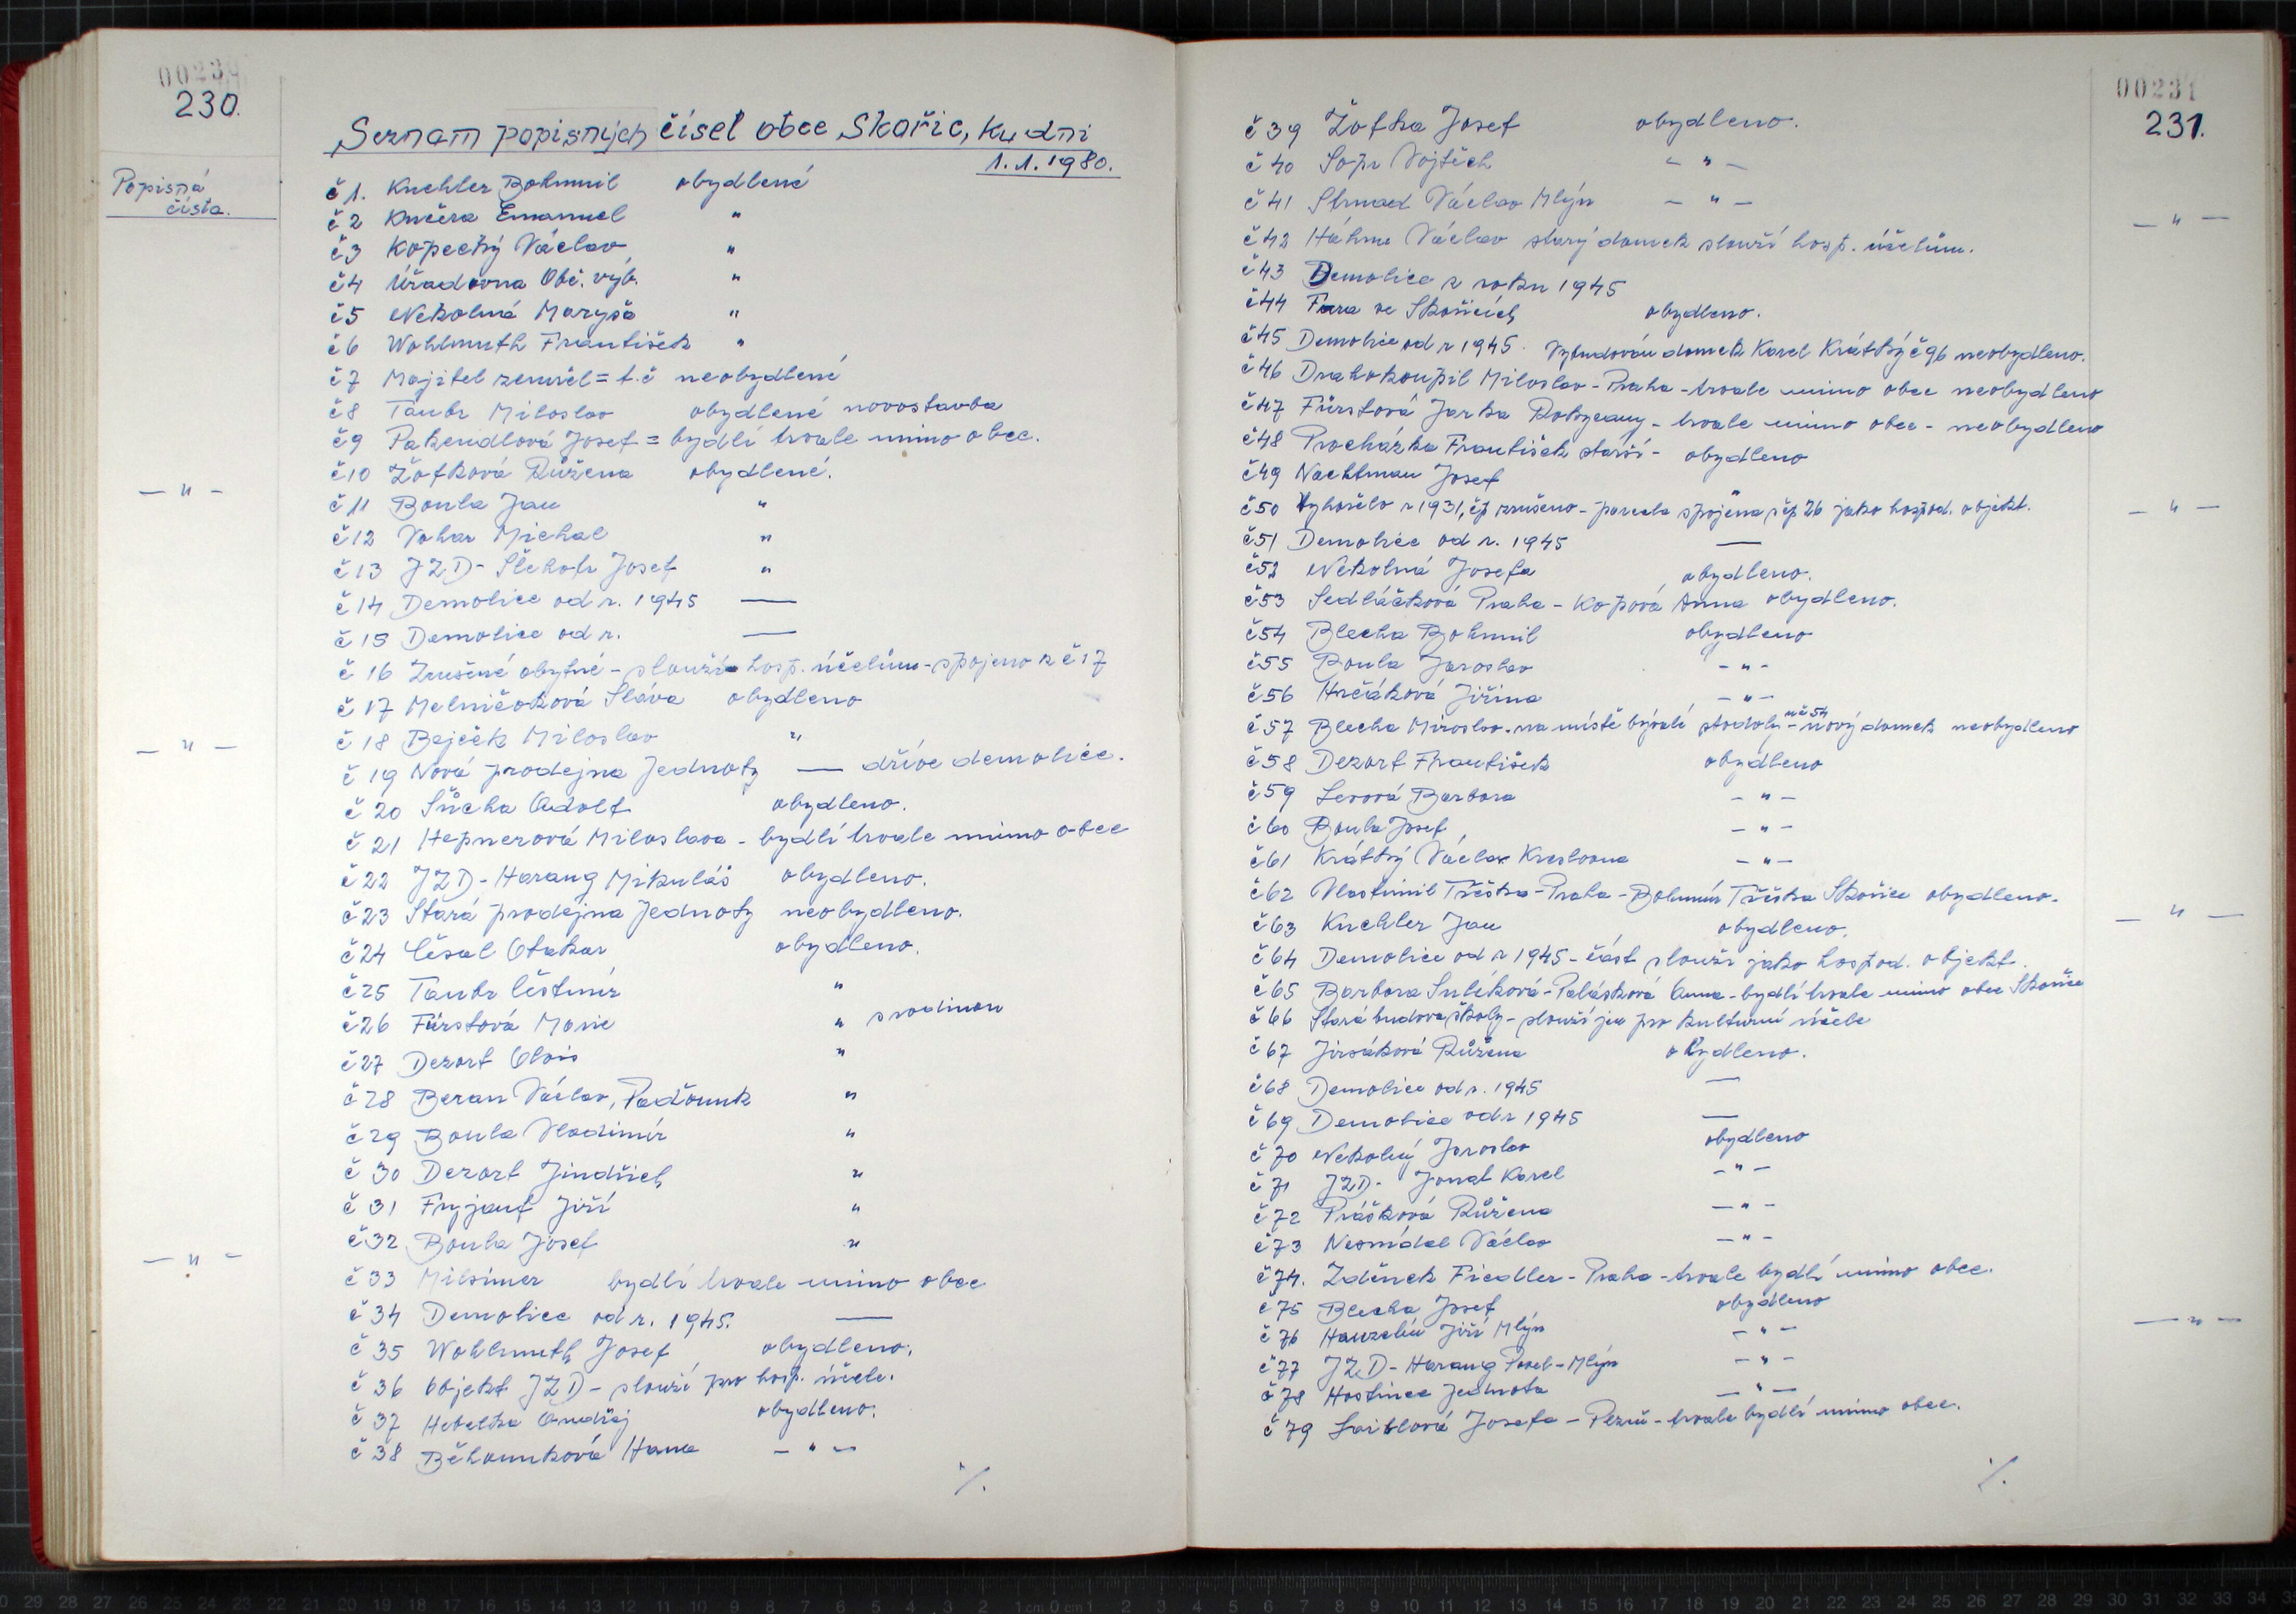 00230
230.
Seznam popisných čísel obce Skořic, Ku dni
1.1.1980.
Popisná
čísla.
č 1. Kuchler Bohumil obydlené
č 2 Kučera Emanuel "
č 3 Kopecký Václav "
č 4 Úřadovna Obč. výb. "
č 5 Nekolná Maryša "
č 6 Wohlmuth František "
č 7 Majitel zemřel = t.č neobydlené
č 8 Taubr Miloslav obydlené novostavba
č 9 Pakendlová Josef = bydlí trvale mimo obec.
č 10 Žofková Růžena obydlené.
— " —
č 11 Boula Jan "
č 12 Vohar Michal "
č 13 JZD - Šlehofr Josef "
č 14 Demolice od r. 1945 —
č 15 Demolice od r. —
č 16 Zrušené obytné - slouží hosp. účelům - spojeno z č 17
č 17 Melničoková Sláva obydleno
č 18 Bejček Miloslav "
— " —
č 19 Nová prodejna Jednoty — dříve demolice.
č 20 Sůcha Adolf obydleno.
č 21 Hepnerová Miloslava - bydlí trvale mimo obec
č 22 JZD - Harang Mikuláš obydleno.
č 23 Stará prodejna Jednoty neobydleno.
č 24 Česal Otakar obydleno.
č 25 Taubr Čestmír "
č 26 Fürstová Marie " s rodinou
č 27 Dezort Alois "
č 28 Beran Václav, Padrťunk "
č 29 Boula Vladimír "
č 30 Dezort Jindřich "
č 31 Fryjauf Jiří "
č 32 Boula Josef "
— " —
č 33 Milsimer bydlí trvale mimo obec
č 34 Demolice od r. 1945. —
č 35 Wohlmuth Josef obydleno.
č 36 Objekt JZD - slouží pro hosp. účele.
č 37 Hebelka Ondřej obydleno.
č 38 Běhounková Hana - " -
./.
00231
231.
č 39 Žofka Josef obydleno.
č 40 Sopr Vojtěch - " -
č 41 Strnad Václav Mlýn - " -
— " —
č 42 Háhna Václav starý domek slouží hosp. účelům.
č 43 Demolice z roku 1945
č 44 Fara ve Skořicích obydleno.
č 45 Demolice od r 1945. Vybudován domek Karel Krátký č 96 neobydleno.
č 46 Drahokoupil Miloslav - Praha - trvale mimo obec neobydleno
č 47 Fürstová Jarka Rokycany - trvale mimo obec - neobydleno
č 48 Procházka František starší - obydleno
č 49 Nachtman Josef "
č 50 Vyhořelo r 1931, čp zrušeno - parcela spojena s čp 26 jako hospod. objekt.
— " —
č 51 Demolice od r. 1945 —
č 52 Nekolná Josefa obydleno.
č 53 Sedláčková Praha - Kopová Anna obydleno.
č 54 Blecha Bohumil obydleno
č 55 Boula Jaroslav - " -
č 56 Hrčáková Jiřina - " -
č 57 Blecha Miroslav - na místě bývalé stodoly u č 54 - nový domek neobydleno
č 58 Dezort František obydleno
č 59 Levová Barbora - " -
č 60 Boula Josef - " -
č 61 Krátký Václav Kreslovna - " -
č 62 Vlastimil Tříska - Praha - Bohumír Tříska Skořice obydleno.
— " —
č 63 Kuchler Jan obydleno.
č 64 Demolice od r 1945 - část slouží jako hospod. objekt.
č 65 Barbora Sulíková - Palásková Anna - bydlí trvale mimo obec Skořice
č 66 Stará budova školy - slouží jen pro kulturní účele
č 67 Jirsáková Růžena obydleno.
č 68 Demolice od r. 1945 —
č 69 Demolice od r 1945 —
č 70 Nekolný Jaroslav obydleno
č 71 JZD - Jonat Karel - " -
č 72 Prášková Růžena - " -
č 73 Nesnídal Václav - " -
č 74. Zdeněk Fiedler - Praha - trvale bydlí mimo obec.
č 75 Blecha Josef obydleno
č 76 Hauzelín Jiří Mlýn - " -
— " —
č 77 JZD - Harang Pavel - Mlýn - " -
č 78 Hostinec Jednota - " -
č 79 Laiblová Josefa - Plzeň - trvale bydlí mimo obec.
./.